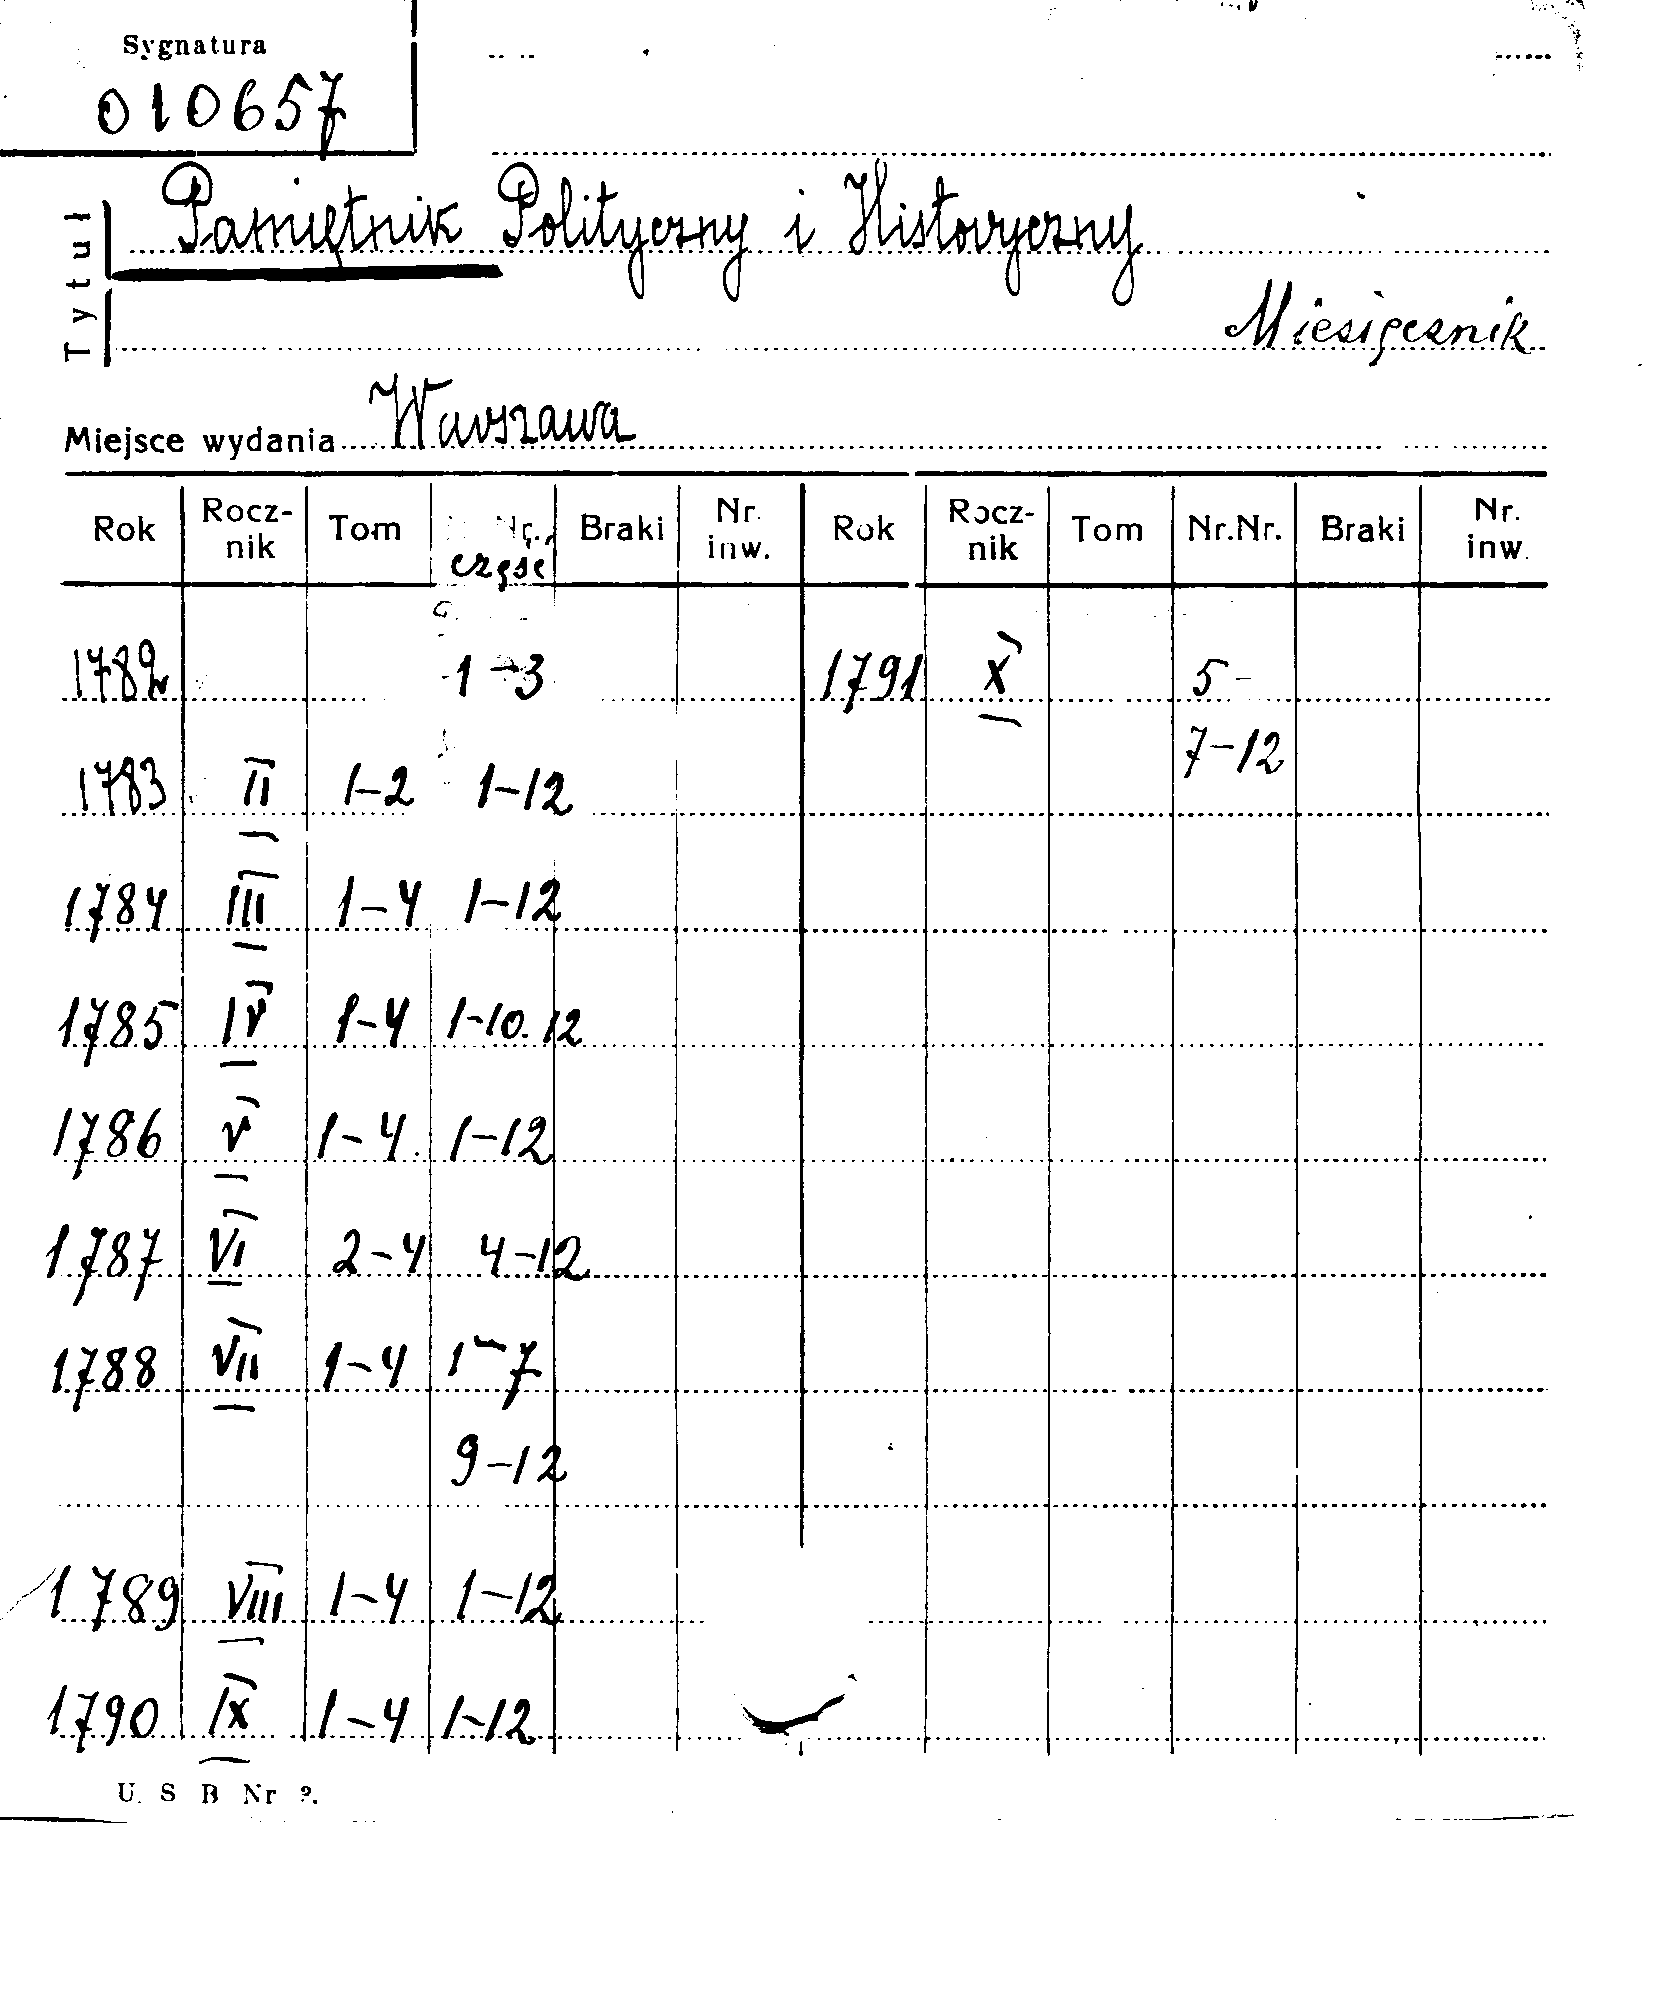 Sygnatura
010657
Tytuł
Pamiętnik Polityczny i Historyczny
Miesięcznik
Miejsce wydania Warszawa
Rok Rocz-nik Tom Nr. część Braki Nr. inw. Rok Rocz-nik Tom Nr.Nr. Braki Nr. inw.
1782 1-3 1791 X 5-
7-12
1783 II 1-2 1-12
1784 III 1-4 1-12
1785 IV 1-4 1-10. 12
1786 V 1-4. 1-12
1787 VI 2-4 4-12
1788 VII 1-4 1-7
9-12
1789 VIII 1-4 1-12
1790 IX 1-4 1-12
U. S B Nr